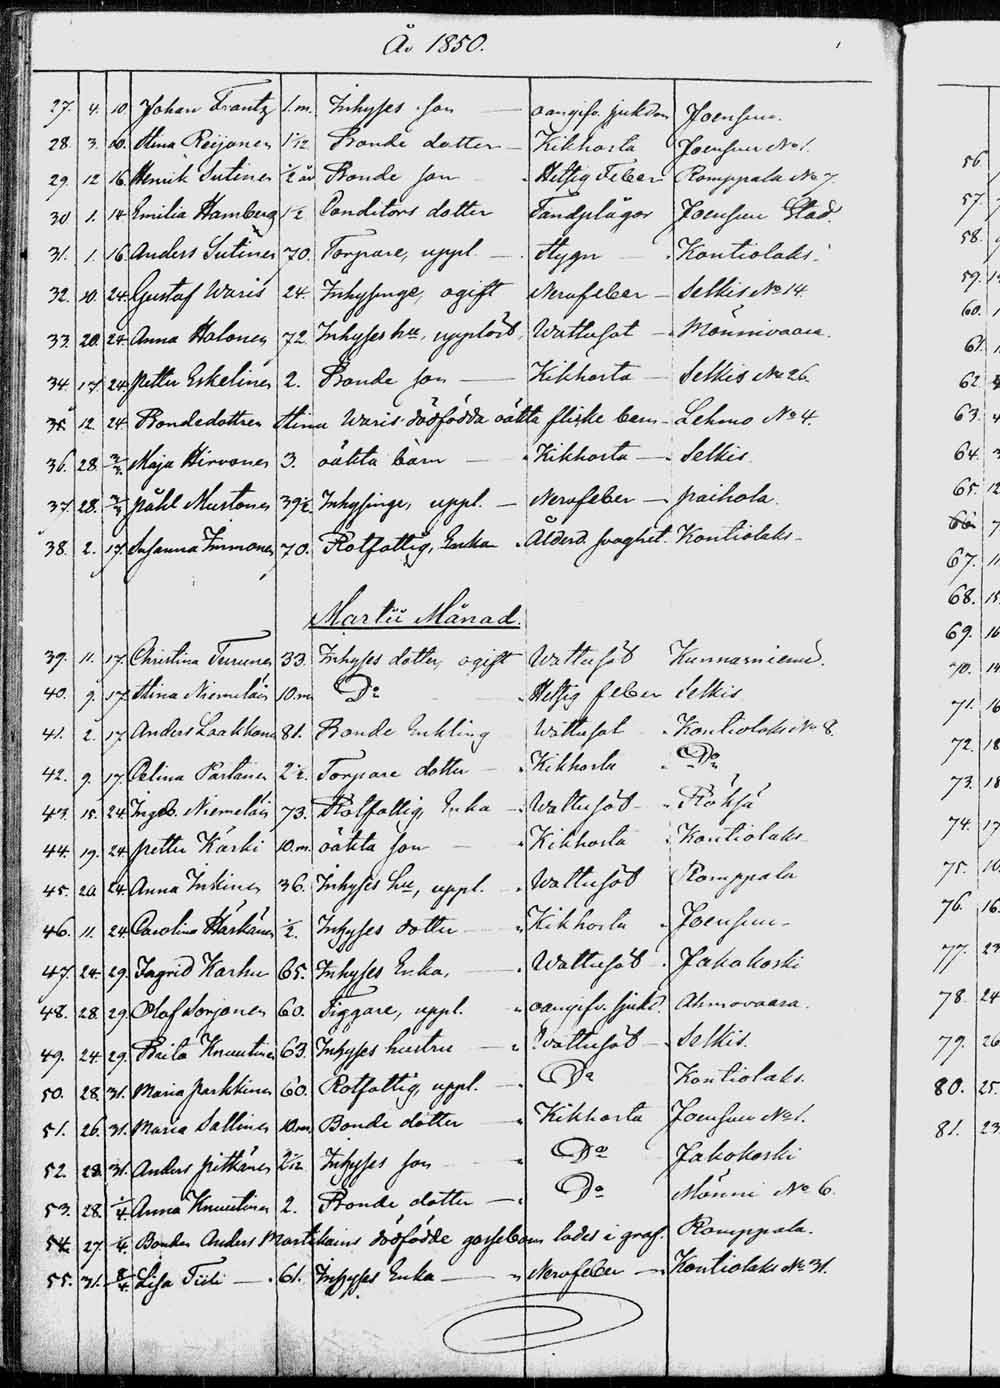 År 1850.
27. 4. 10. Johan Frantz 1.m. Inhyses son — oangifv. sjukdom Joensuu.
28. 3. 10. Stina Reijonen 1 1/12 Bonde dotter — Kikhosta Joensuu No 1.
29. 12 16. Henrik Sutinen 1/2 år Bonde son — Heftig Feber Romppala No 7.
30 1. 14. Emilia Hamberg 1 1/2 Conditors dotter Tandplågor Joensuu Stad.
31. 1. 16. Anders Sutinen 70. Torpare, uppl. — Stygn — Kontiolaks.
32. 10. 24. Gustaf Waris 24. Inhysinge, ogift Nervfeber — Selkis No 14.
33. 20. 24. Anna Halonen 72. Inhyses hu, upplöst, Wattusot — Mönnivaara.
34. 17. 24. Petter Eskelinen 2. Bonde son — Kikhosta — Selkis No 26.
35. 12. 24. Bondedottren Stina Waris dödfödda oäkta flicke barn — Lehmo No 4.
36. 28. 3/3. Maja Hirvonen 3. oäkta barn — Kikhosta — Selkis.
37. 28. 3/3. Påhl Mustonen 39 1/2. Inhysinge, uppl. — Nervfeber — Paihola.
38. 2. 17. Susanna Immonen 70. Rotfattig, Enka Ålderd. svaghet. Kontiolaks —
Martii Månad.
39. 11. 17. Christina Turunen 33. Inhyses dotter, ogift Wattusot Kunnasniemi.
40. 9. 17. Stina Niemeläin 10.m Do Heftig feber Selkis
41. 2. 17. Anders Laakkonen 81. Bonde Enkling Wattusot Kontiolaks No 8.
42. 9. 17. Celina Partanen 2 1/2. Torpare dotter — Kikhosta Do
43. 15. 24. Ingeb. Niemeläin 73. Rotfattig, Enka Wattusot —
44. 19. 24. Petter Kärki 10.m. oäkta son — Kikhosta Kontiolaks
45. 20. 24. Anna Inkinen 36. Inhyses hu, uppl. Wattusot Romppala
46. 11. 24. Carolina Härkänen 1/2. Inhyses dotter — Kikhosta Joensuu —
47. 24. 29. Ingrid Karhu 65. Inhyses Enka, — Wattusot Jakokoski
48. 28. 29. Olof Sorjonen 60. Tiggare, uppl. oangifv. sjukd. Ahmovaara.
49. 24. 29. Brita Knuutinen 63. Inhyses hustru — Wattusot — Selkis.
50. 28. 31. Maria Parkkinen 60. Rotfattig, uppl. Do Kontiolaks.
51. 26. 31. Maria Sallinen 10.m Bonde dotter — Kikhosta Joensuu No 1.
52. 28. 31. Anders Pitkänen 2/12 Inhyses son Do Jakokoski
53. 28. 1/4. Anna Knuutinen 2. Bonde dotter — Do Mönni No 6.
54. 27. 1/4. Bonden Anders Martikains dödfödde gossebarn lades i graf. Romppala.
55. 31. 2/4. Lisa Tiili — 61. Inhyses Enka — Nervfeber — Kontiolaks No 31.
56.
57.
58.
59.
60.
61.
62.
63.
64.
65. 12
66. 7.
67. 11
68. 15.
69. 16
70. 14
71. 16
72. 18
73. 18
74. 17
75. 10.
76. 16.
77. 23
78. 24
79. 26
80. 25.
81. 23